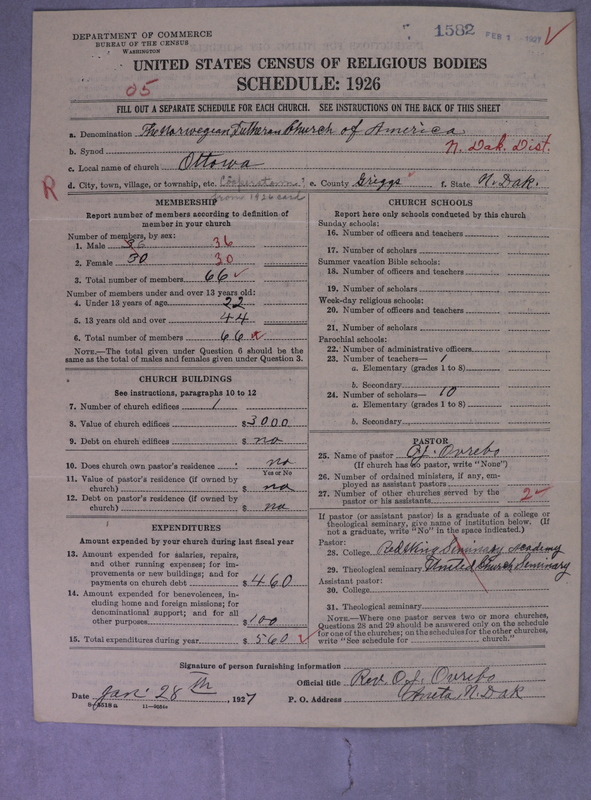 DEPARTMENT OF COMMERCE
BUREAU OF THE CENSUS
WASHINGTON
1582 FEB 1 1927
UNITED STATES CENSUS OF RELIGIOUS BODIES
SCHEDULE: 1926
05
FILL OUT A SEPARATE SCHEDULE FOR EACH CHURCH. SEE INSTRUCTIONS ON THE BACK OF THIS SHEET
a. Denomination The Norwegian Lutheran Church of America
b. Synod N. Dak. Dist.
c. Local name of church Ottowa
R d. City, town, village, or township, etc. Cooperstown e. County Griggs f. State N. Dak.
from 1926 card
MEMBERSHIP
Report number of members according to definition of
member in your church
Number of members, by sex:
1. Male 36 36
2. Female 30 30
3. Total number of members 66
Number of members under and over 13 years old:
4. Under 13 years of age 22
5. 13 years old and over 44
6. Total number of members 66
NOTE.—The total given under Question 6 should be the
same as the total of males and females given under Question 3.
CHURCH BUILDINGS
See instructions, paragraphs 10 to 12
7. Number of church edifices 1
8. Value of church edifices $3000
9. Debt on church edifices $ no
10. Does church own pastor's residence no
Yes or No
11. Value of pastor's residence (if owned by
church) $ no
12. Debt on pastor's residence (if owned by
church) $ no
EXPENDITURES
Amount expended by church during last fiscal year
13. Amount expended for salaries, repairs,
and other running expenses; for im-
provements or new buildings; and for
payments on church debt $460
14. Amount expended for benevolences, in-
cluding home and foreign missions; for
denominational support; and for all
other purposes $100
15. Total expenditures during year $560
CHURCH SCHOOLS
Report here only schools conducted by this church
Sunday schools:
16. Number of officers and teachers
17. Number of scholars
Summer vacation Bible schools:
18. Number of officers and teachers
19. Number of scholars
Week-day religious schools:
20. Number of officers and teachers
21. Number of scholars
Parochial schools:
22. Number of administrative officers
23. Number of teachers— 1
a. Elementary (grades 1 to 8)
b. Secondary
24. Number of scholars— 10
a. Elementary (grades 1 to 8)
b. Secondary
PASTOR
25. Name of pastor O.J. Ovrebo
(If church has no pastor, write "None")
26. Number of ordained ministers, if any, em-
ployed as assistant pastors
27. Number of other churches served by the
pastor or his assistants 2
If pastor (or assistant pastor) is a graduate of a college or
theological seminary, give name of institution below. (If
not a graduate, write "No" in the space indicated.)
Pastor:
28. College Red Wing Seminary Academy
29. Theological seminary United Church Seminary
Assistant pastor:
30. College
31. Theological seminary
NOTE.—Where one pastor serves two or more churches,
Questions 28 and 29 should be answered only on the schedule
for one of the churches; on the schedules for the other churches,
write "See schedule for church."
Signature of person furnishing information
Official title Rev. O.J. Ovrebo
Date Jan. 28th, 1927 P. O. Address Aneta N. Dak
8-5518a 11—9554a